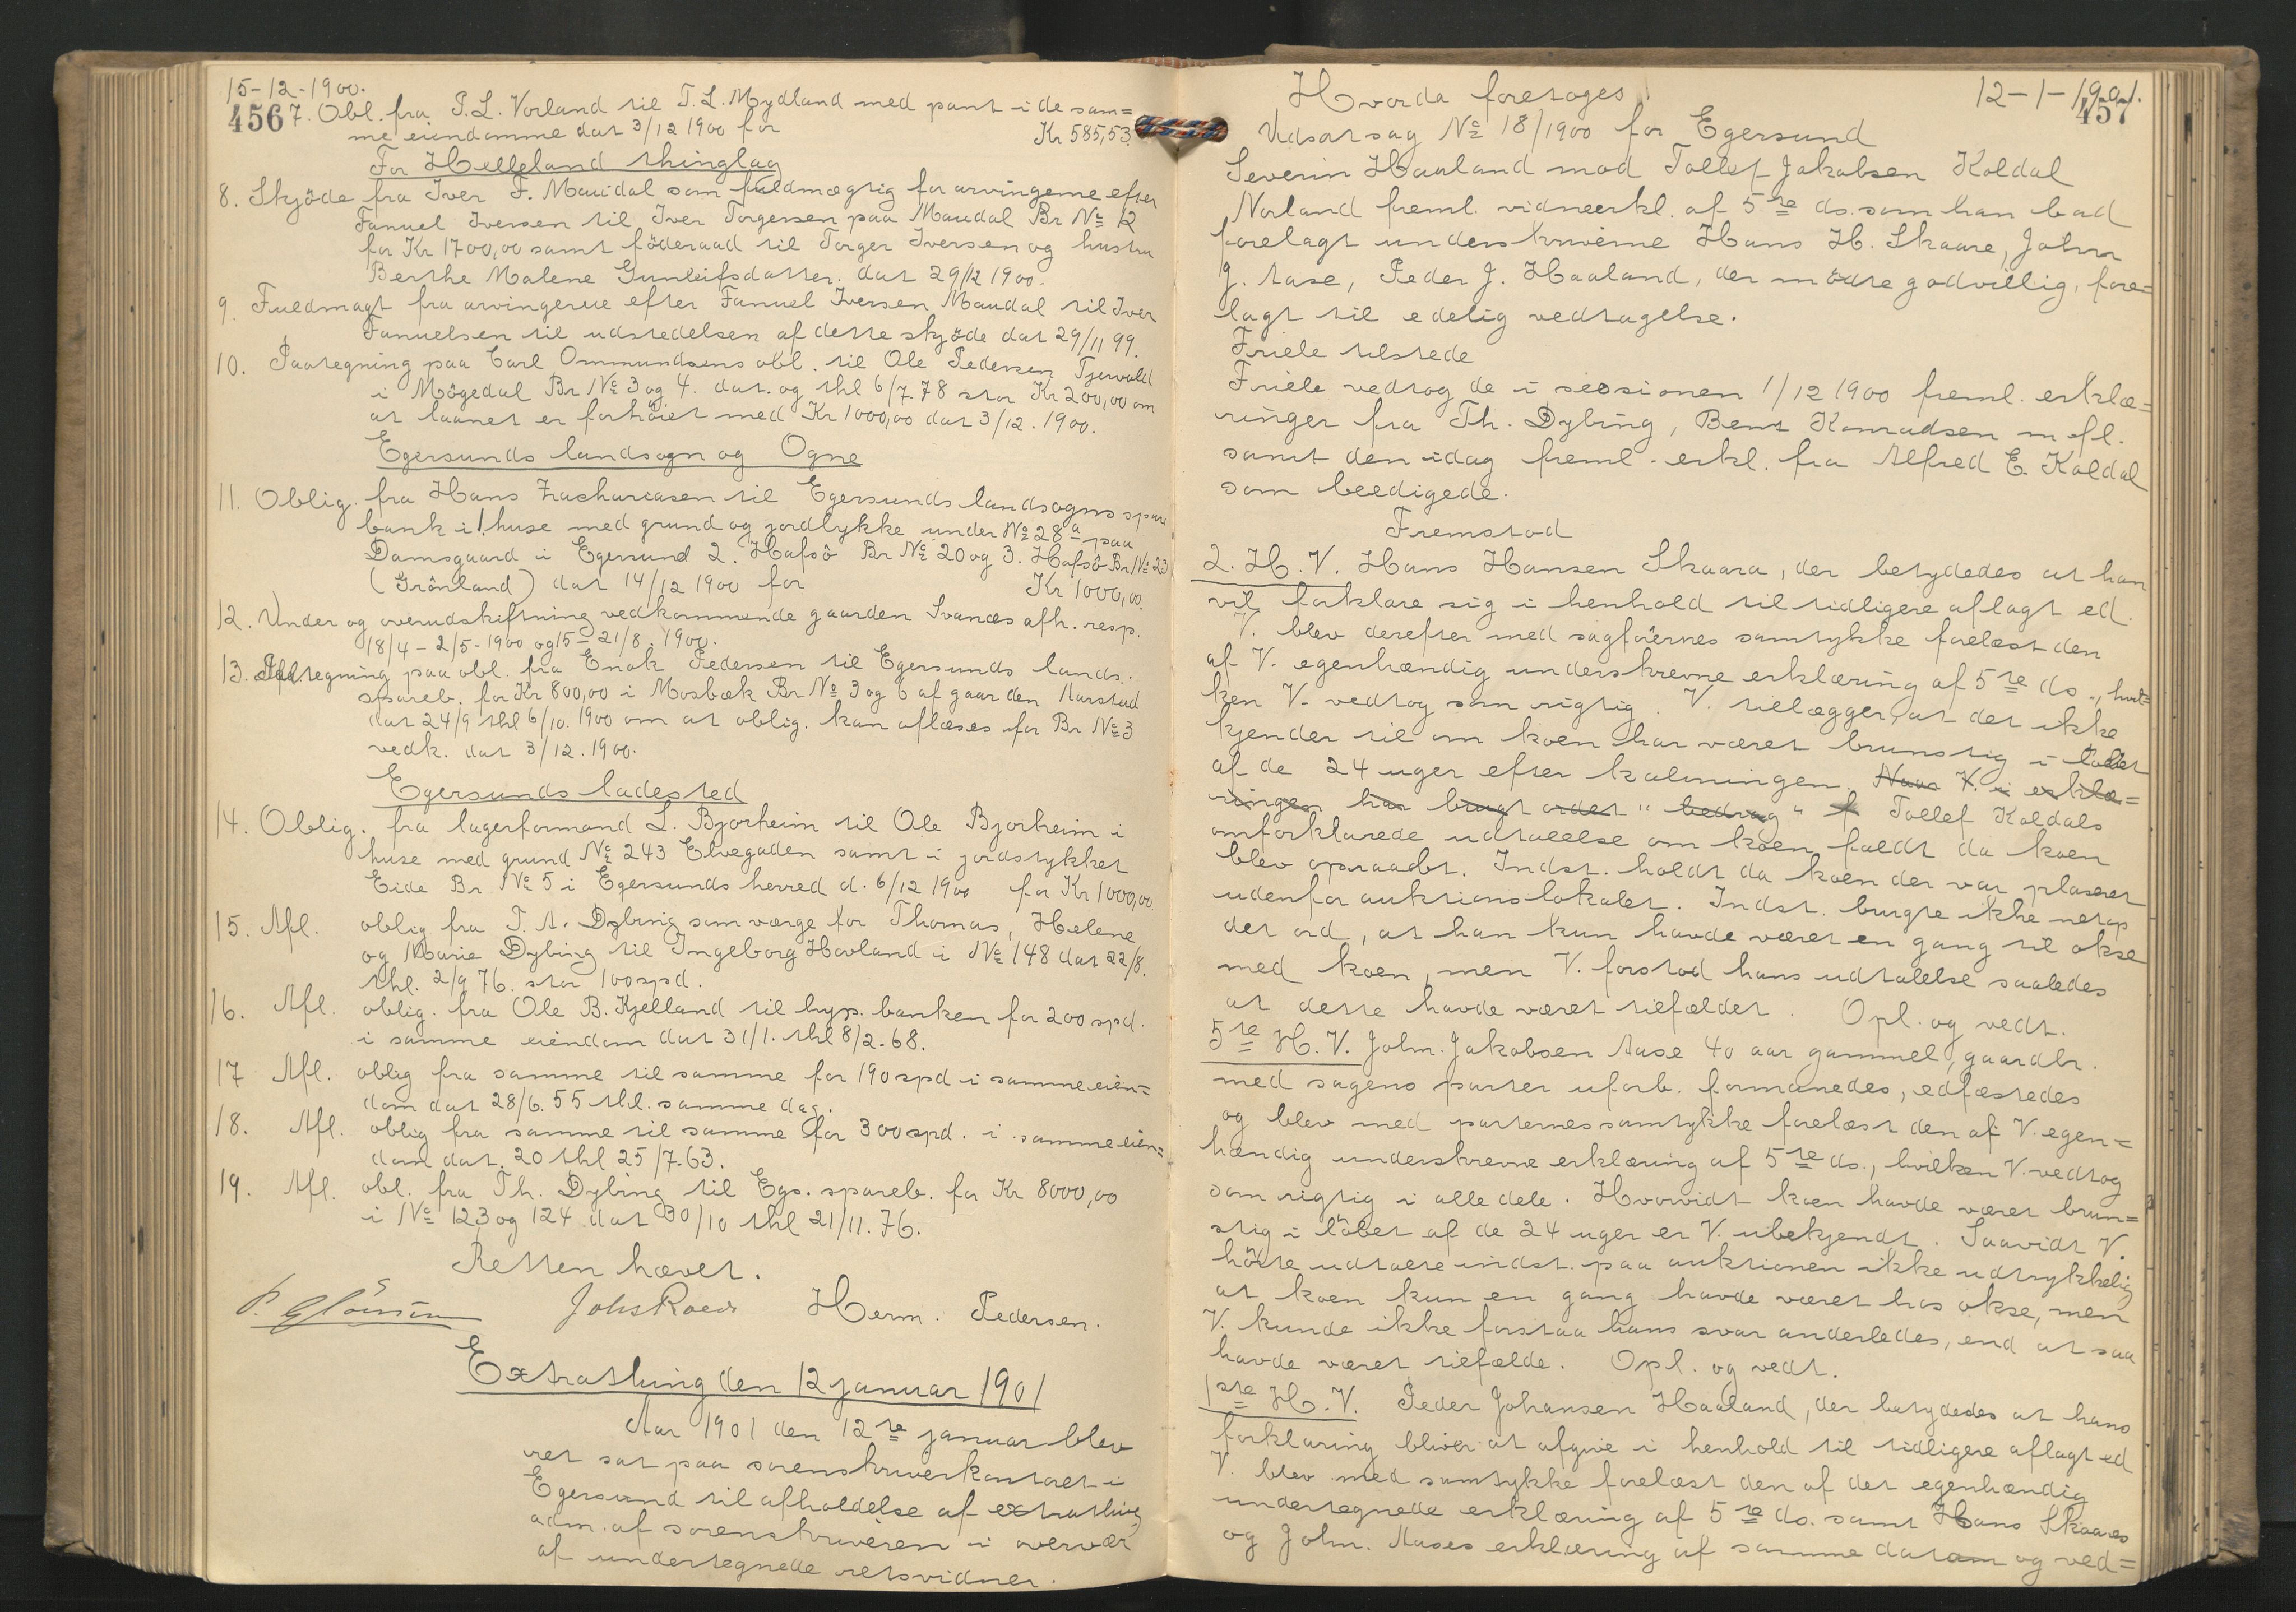 15-12-1900.
456
7. Obl. fra P. L. Vorland til T. L. Mydland med pant i de sam=
me eiendomme dat 3/12 1900 for Kr 585,53.
For Helleland thinglag
8. Skjöde fra Iver F. Maudal som fuldmægtig for arvingerne efter
Fanuel Iversen til Iver Torgersen paa Maudal Br No 12
for Kr 1700,00 samt föderaad til Torger Iversen og hustru
Berthe Malene Gunleifsdatter. dat 29/12 1900.
9. Fuldmagt fra arvingerne efter Fanuel Iversen Maudal til Iver
Fanuelsen til udstedelsen af dette skjöde dat 29/11 99.
10. Paategning paa Carl Ommundsens obl. til Ole Pedersen Tjorvald
i Mögedal Br No 3 og 4. dat. og thl 6/7. 78 stor Kr 200,00 om
at laanet er forhöiet med Kr 1000,00 dat 3/12. 1900.
Egersunds landsogn og Ogne
11. Oblig. fra Hans Zachariasen til Egersunds landsogns spare
bank i 1. huse med grund og jordlykke under No 28a paa
Damsgaard i Egersund 2. Hafsö Br No 20 og 3. Hafsö Br. No 23
(Grönland) dat 14/12 1900 for Kr 1000,00.
12. Under og overudskiftning vedkommende gaarden Svanes afh. resp.
18/4 - 2/5 - 1900 og 15 - 21/8. 1900.
13. Paategning paa obl. fra Enok Pedersen til Egersunds lands.
spareb. for Kr 800,00 i Mosbæk Br No 3 og 6 af gaarden Aarstad
dat 24/9 thl 6/10. 1900 om at oblig. kan aflæses for Br No 3
vedk. dat 3/12. 1900.
Egersunds ladested
14. Oblig. fra lagerformand L. Bjorheim til Ole Bjorheim i
huse med grund No 243 Elvegaden samt i jordstykket
Eide Br No 5 i Egersunds herred d. 6/12 1900 for Kr 1000,00.
15. Afl. oblig fra T. A. Dybing som værge for Thomas, Helene
og Marie Dybing til Ingeborg Hovland i No 148 dat 22/8.
thl. 2/9 76. stor 100 spd.
16. Afl. oblig. fra Ole B. Kjelland til hyp. banken for 200 spd.
i samme eiendom dat 31/1. thl 8/2-68.
17 Afl. oblig fra samme til samme for 190 spd i samme eien=
dom dat 28/6. 55 thl. samme dag.
18. Afl. oblig fra samme til samme for 300 spd. i samme eien=
dom dat. 20 thl 25/7-63.
19. Afl. obl. fra Th. Dybing til Egs. spareb. for Kr 8000,00
i No 123 og 124 dat 30/10 thl 21/11. 76.
Retten hævet.
Herm. Pedersen.
Extrathing den 12 januar 1901
Aar 1901 den 12te januar blev
ret sat paa sorenskriverkontoret i
Egersund til afholdelse af extrathing
adm. af sorenskriveren i overvær
af undertegnede retsvidner.
12-1-1901.
457
Hvorda foretoges
Udsatsag No 18/1900 for Egersund
Severin Haaland mod Tollef Jakobsen Koldal
Norland freml. vidneerkl. af 5te ds. som han bad
forelagt underskriverne Hans H. Skaare, John
J. Aase, Peder J. Haaland, der mödte godvillig, fore=
lagt til edelig vedtagelse.
Friele tilstede
Friele vedtog de i sessionen 1/12 1900 freml. erklæ=
ringer fra Th. Dybing, Bent Konradsen m fl.
samt den idag freml. erkl. fra Alfred E. Koldal
som beedigede.
Fremstod
2. H. V. Hans Hansen Skaara, der betydedes at han
vil forklare sig i henhold til tidligere aflagt ed.
V. blev derefter med sagförernes samtykke forelæst den
af V. egenhændig underskrevne erklæring af 5te ds., hvil=
ken V. vedtog som rigtig. V. tillægger, at det ikke
kjender til om koen har været brunstig i löbet
af de 24 uger efter kalvningen. Naar V. i erklæ=
ringen har brugt ordet "bedrag" f Tollef Koldals
omforklarede udtalelse om koen faldt da koen
blev opraabt. Indst. holdt da koen der var placeret
udenfor auktionslokalet. Indst. brugte ikke netop
det ord, at han kun havde været en gang til okse
med koen, men V. forstod hans udtalelse saaledes
at dette havde været tilfældet. Opl. og vedt.
5te H. V. John. Jakobsen Aase 40 aar gammel, gaardbr.
med sagens parter uforb. formanedes, edfæstedes
og blev med parternes samtykke forelæst den af V. egen=
hændig underskrevne erklæring af 5te ds., hvilken V. vedtog
som rigtig i alle dele. Hvorvidt koen havde været brun=
stig i löbet af de 24 uger er V. ubekjendt. Saavidt V.
hörte udtalte indst. paa auktionen ikke udtrykkelig
at koen kun en gang havde været hos okse, men
V. kunde ikke forstaa hans svar anderledes, end at saa
havde været tilfælde. Opl. og vedt.
1ste H. V. Peder Johansen Haaland, der betydedes at hans
forklaring bliver at afgive i henhold til tidligere aflagt ed
V. blev med samtykke forelæst den af det egenhændig
undertegnede erklæring af 5te ds. samt Hans Skaares
og John. Aases erklæring af samme datum og ved=